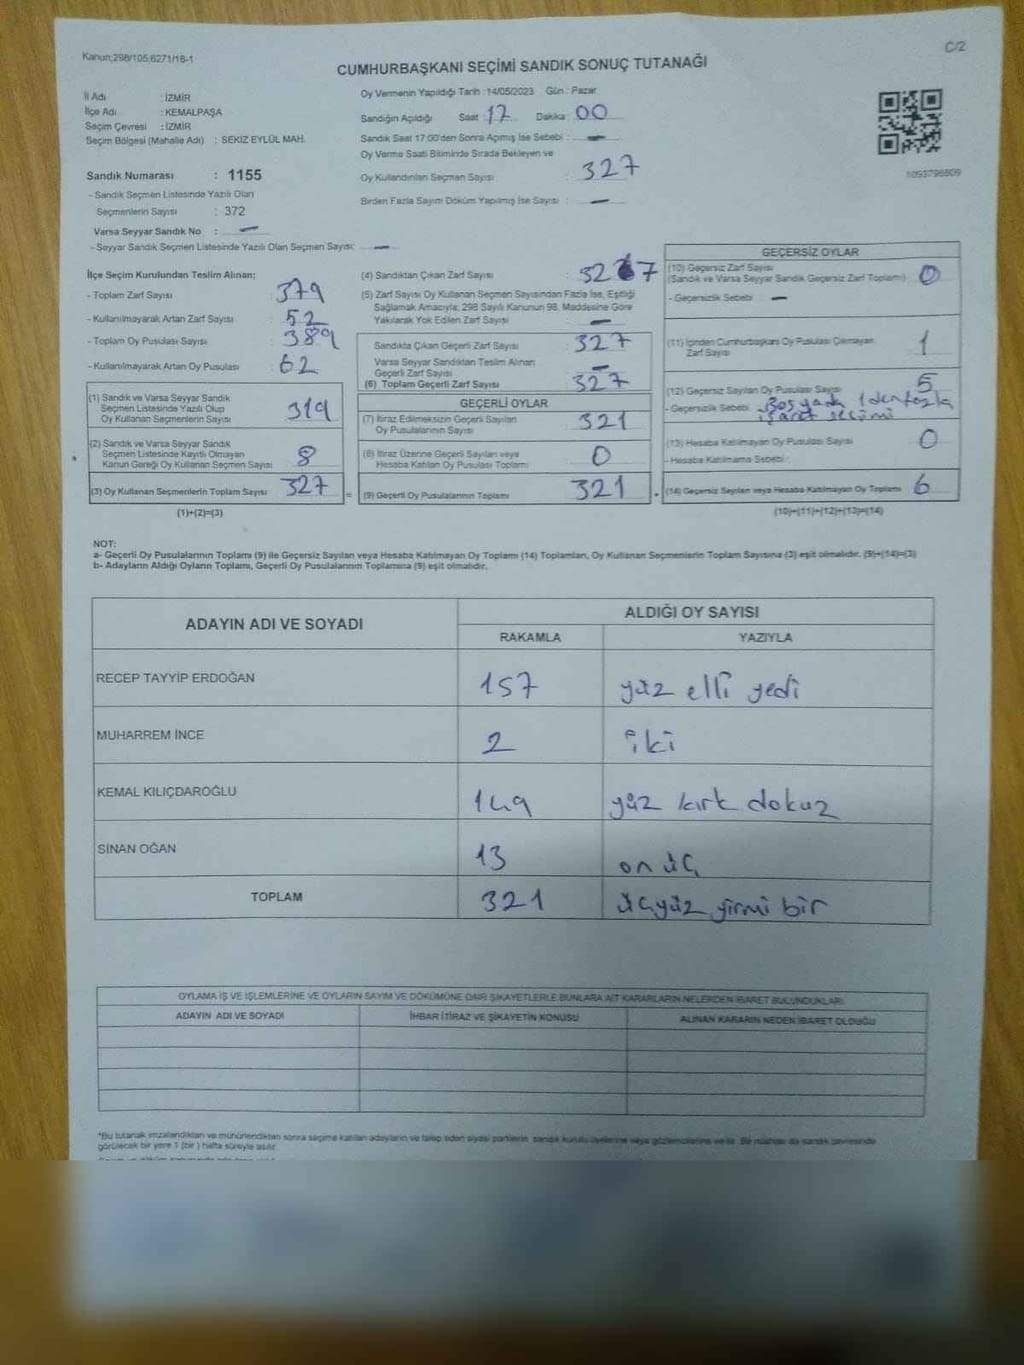 Kanun;298/105;6271/18-1
C/2
CUMHURBAŞKANI SEÇİMİ SANDIK SONUÇ TUTANAĞI
İl Adı : İZMİR
İlçe Adı : KEMALPAŞA
Seçim Çevresi : İZMİR
Seçim Bölgesi (Mahalle Adı) : SEKİZ EYLÜL MAH.
Oy Vermenin Yapıldığı Tarih :14/05/2023 Gün : Pazar
Sandığın Açıldığı Saat 17 Dakika 00
Sandık Saat 17:00'den Sonra Açılmış İse Sebebi : —
Oy Verme Saati Bitiminde Sırada Bekleyen ve
Oy Kullandırılan Seçmen Sayısı : 327
Birden Fazla Sayım Döküm Yapılmış İse Sayısı : —
1093796809
Sandık Numarası : 1155
- Sandık Seçmen Listesinde Yazılı Olan
Seçmenlerin Sayısı : 372
Varsa Seyyar Sandık No : —
- Seyyar Sandık Seçmen Listesinde Yazılı Olan Seçmen Sayısı: —
İlçe Seçim Kurulundan Teslim Alınan;
- Toplam Zarf Sayısı : 379
- Kullanılmayarak Artan Zarf Sayısı : 52
- Toplam Oy Pusulası Sayısı : 389
- Kullanılmayarak Artan Oy Pusulası : 62
(1) Sandık ve Varsa Seyyar Sandık
Seçmen Listesinde Yazılı Olup
Oy Kullanan Seçmenlerin Sayısı 319
(2) Sandık ve Varsa Seyyar Sandık
Seçmen Listesinde Kayıtlı Olmayan
Kanun Gereği Oy Kullanan Seçmen Sayısı 8
(3) Oy Kullanan Seçmenlerin Toplam Sayısı 327
(1)+(2)=(3)
(4) Sandıktan Çıkan Zarf Sayısı : 327
(5) Zarf Sayısı Oy Kullanan Seçmen Sayısından Fazla İse, Eşitliği
Sağlamak Amacıyla; 298 Sayılı Kanunun 98. Maddesine Göre
Yakılarak Yok Edilen Zarf Sayısı —
Sandıkta Çıkan Geçerli Zarf Sayısı 327
Varsa Seyyar Sandıktan Teslim Alınan
Geçerli Zarf Sayısı —
(6) Toplam Geçerli Zarf Sayısı 327
GEÇERLİ OYLAR
(7) İtiraz Edilmeksizin Geçerli Sayılan
Oy Pusulalarının Sayısı 321
(8) İtiraz Üzerine Geçerli Sayılan veya
Hesaba Katılan Oy Pusulası Toplamı 0
= (9) Geçerli Oy Pusulalarının Toplamı 321
GEÇERSİZ OYLAR
(10) Geçersiz Zarf Sayısı
(Sandık ve Varsa Seyyar Sandık Geçersiz Zarf Toplamı) 0
- Geçersizlik Sebebi —
(11) İçinden Cumhurbaşkanı Oy Pusulası Çıkmayan
Zarf Sayısı 1
(12) Geçersiz Sayılan Oy Pusulası Sayısı 5
- Geçersizlik Sebebi Boş yada 1 den fazla
işaret seçimi
(13) Hesaba Katılmayan Oy Pusulası Sayısı 0
- Hesaba Katılmama Sebebi :
+ (14) Geçersiz Sayılan veya Hesaba Katılmayan Oy Toplamı 6
(10)+(11)+(12)+(13)=(14)
NOT:
a- Geçerli Oy Pusulalarının Toplamı (9) ile Geçersiz Sayılan veya Hesaba Katılmayan Oy Toplamı (14) Toplamları, Oy Kullanan Seçmenlerin Toplam Sayısına (3) eşit olmalıdır. (9)+(14)=(3)
b- Adayların Aldığı Oyların Toplamı, Geçerli Oy Pusulalarının Toplamına (9) eşit olmalıdır.
ADAYIN ADI VE SOYADI ALDIĞI OY SAYISI
RAKAMLA YAZIYLA
RECEP TAYYİP ERDOĞAN 157 yüz elli yedi
MUHARREM İNCE 2 iki
KEMAL KILIÇDAROĞLU 149 yüz kırk dokuz
SİNAN OĞAN 13 on üç
TOPLAM 321 üçyüz yirmi bir
OYLAMA İŞ VE İŞLEMLERİNE VE OYLARIN SAYIM VE DÖKÜMÜNE DAİR ŞİKAYETLERLE BUNLARA AİT KARARLARIN NELERDEN İBARET BULUNDUKLARI
ADAYIN ADI VE SOYADI İHBAR İTİRAZ VE ŞİKAYETİN KONUSU ALINAN KARARIN NEDEN İBARET OLDUĞU
*Bu tutanak imzalandıktan ve mühürlendikten sonra seçime katılan adayların ve talep eden siyasi partilerin sandık kurulu üyelerine veya gözlemcilerine verilir. Bir nüshası da sandık çevresinde
görülecek bir yere 1 (bir) hafta süreyle asılır.